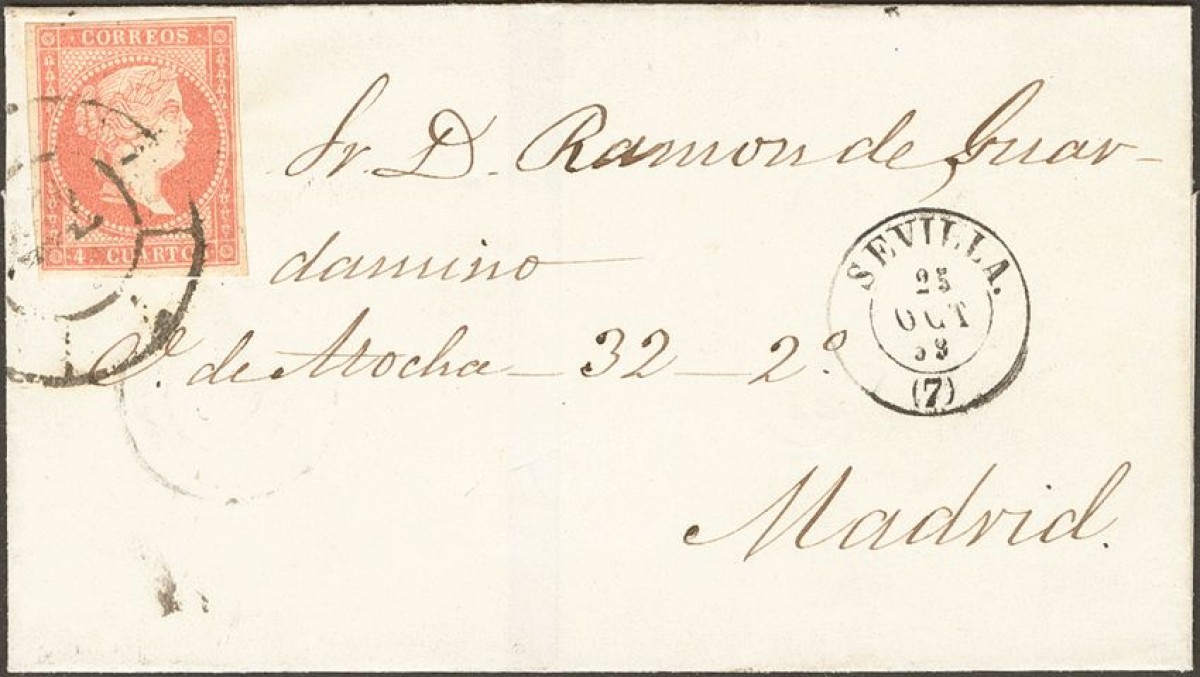 CORREOS
4 CUARTOS
Sr. D. Ramon de Guar-
damino
C. de Atocha - 32 - 2º
Madrid.
SEVILLA.
25
OCT
58
(7)